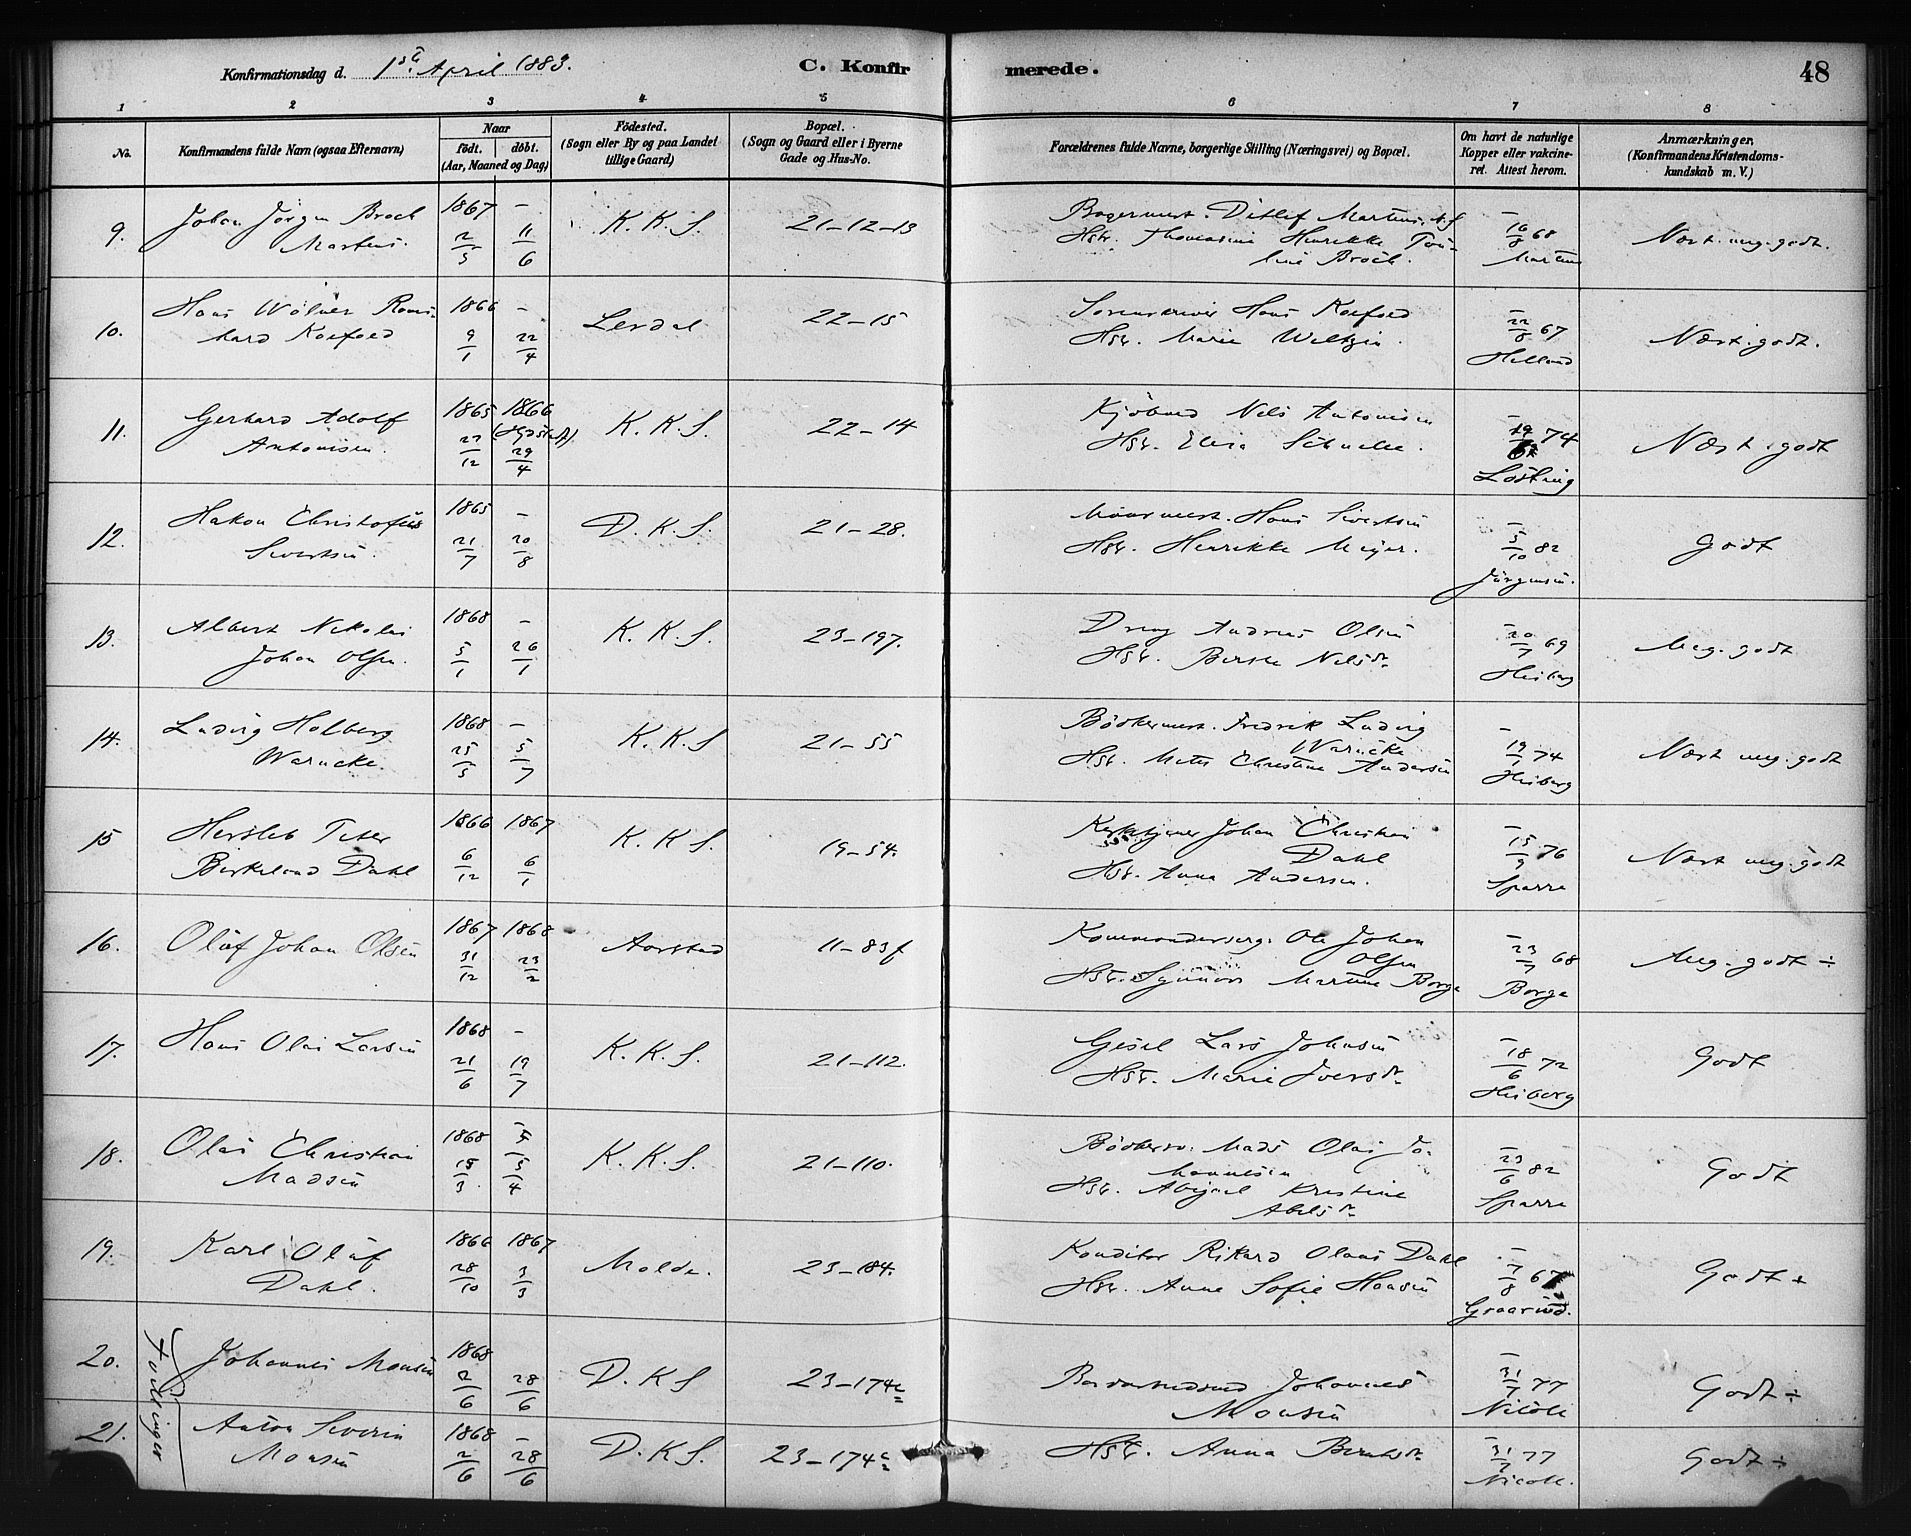 Konfirmationsdag d. 1ste April 1883.
C. Konfirmerede.
48
1 2 3 4 5 6 7 8
No.
Konfirmandens fulde Navn (ogsaa Efternavn)
Naar
födt. döbt.
(Aar, Maaned og Dag)
Födested.
(Sogn eller By og paa Landet
tillige Gaard)
Bopæl.
(Sogn og Gaard eller i Byerne
Gade og Hus-No.
Forældrenes fulde Navne, borgerlige Stilling (Næringsvei) og Bopæl.
Om havt de naturlige
Kopper eller vakcine-
ret. Attest herom.
Anmærkninger.
(Konfirmandens Kristendoms-
kundskab m. V.)
9.
Johan Jörgen Broch
Martens.
1867 –
2/5 11/6
K. K. S.
21–12–13
Bagermest. Ditlef Martens
Hstr. Thomasine Henrikke
Broch.
16/8 68
Martens
Næst. meg. godt.
10.
Hans
hard Koefoed
1866 –
9/1 22/4
Lerdal
22–15
Sorenskriver Hans Koefoed
Hstr. Marie Weltzin.
22/8 67
Helland
Næst. godt.
11.
Gerhard Adolf
Antonisen.
1865 1866
27/12 29/4
K. K. S.
22–14
Kjöbmd Nils Antonisen
Hstr. Elisa
74
Lösting
Næst. godt
12.
Hakon Christofius
Sivertsen.
1865 –
21/7 20/8
D. K. S.
21–28.
Murmest. Hans Sivertsen
Hstr. Henrikke Meyer.
5/10 82
Jürgensen.
Godt
13.
Albert Nikolai
Johan Olsen.
1868 –
5/1 26/1
K. K. S.
23–197.
Dreng Andreas Olsen
Hstr. Berthe Nelsdr
20/7 69
Heiberg
Meg. godt
14.
Ludvig Holberg
Warncke.
1868 –
25/5 5/7
K. K. S
21–55
Bödkermest. Fredrik Ludvig
Warncke
Hstr. Mette Christine Andersen
19/1 74
Heiberg
Næst meg. godt
15
Hersleb Peter
Birkeland Dahl
1866 1867
6/12 6/1
K. K S.
19–54.
Johan Christian
Dahl
Hstr. Anna Andersen.
15/9 76
Sparre
Næst meg. godt
16.
Oluf Johan Olsen
1867 1868
31/12 23/2
Aarstad
11–83f
Kommanderserg. Ole Johan
Olsen
Hstr. Synnöve Martine Borge
23/7 68
Borge
Meg. godt ÷
17.
Hans Olai Larsen
1868 –
21/6 19/7
K. K. S.
21–112.
Gesel Lars Johnsen
Hstr. Marie Iversdr
18/6 72
Heiberg
Godt
18.
Olai Christian
Madsen
1868 –
15/3. 5/4
K. K. S.
21–110.
Bödkersv. Mads Olai Jo-
hannesen
Hstr. Abigael Kristine
Abelsdr
23/6 82
Sparre
Godt
19.
Karl Oluf
Dahl.
1866 1867
28/10 3/3
Molde.
23–184.
Konditor Rikard Olaus Dahl
Hstr. Anne Sofie Hansen
7/8 67
Graarud.
Godt ÷
20.
Tvillinger
Johannes Monsen
1868
2/6 28/6
D. K S
23–174c
Johannes
Monsen
31/7 77
Nicoll
Godt ÷
21.
Anton Severin
Monsen
1868 –
2/6 28/6
D. K S.
23–174c
Hstr. Anna Berntsdr
31/7 77
Nicoll.
Godt ÷